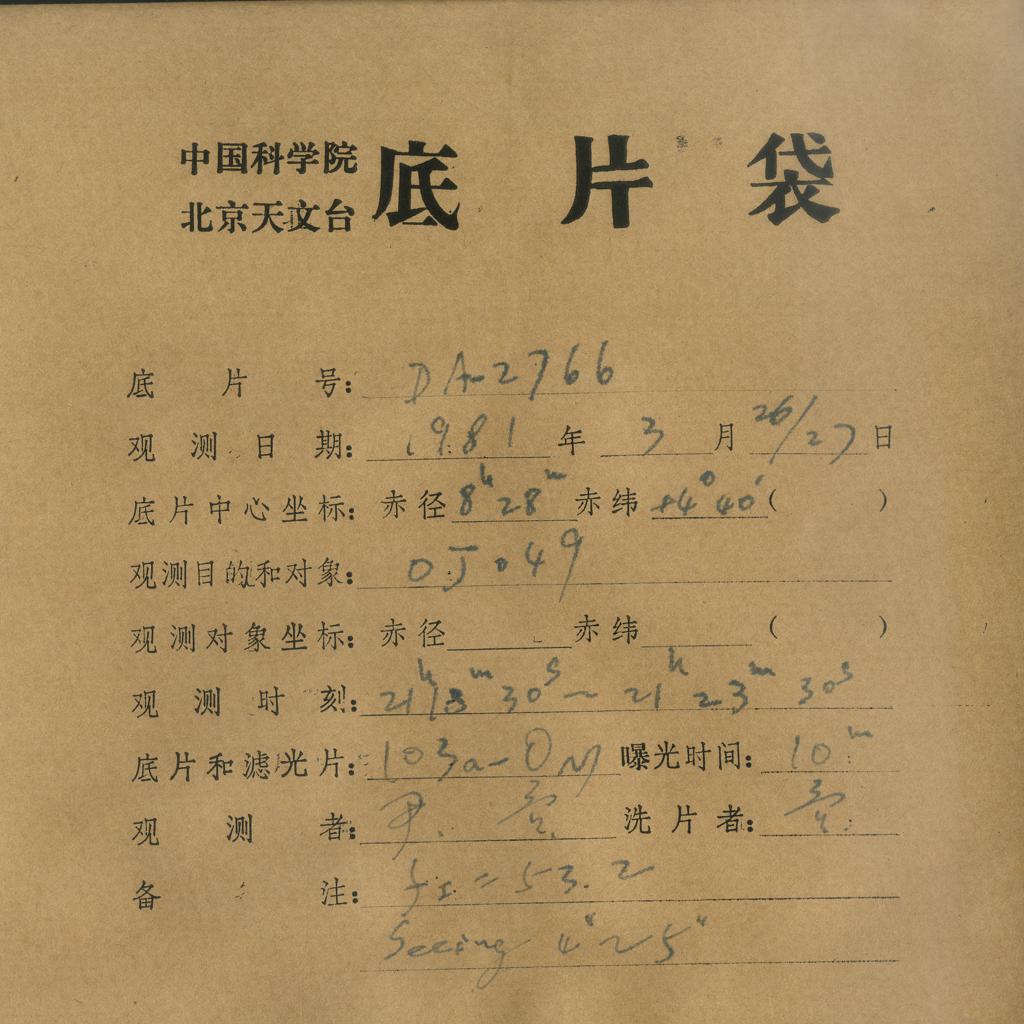 中国科学院
北京天文台
底片袋
底片号: DA-2766
观测日期: 1981年3月26/27日
底片中心坐标: 赤径 8h 28m 赤纬 +4° 40′ ( )
观测目的和对象: OJ 049
观测对象坐标: 赤径 赤纬 ( )
观测时刻: 21h 13m 30s ~ 21h 23m 30s
底片和滤光片: 103a-O 曝光时间: 10m
观测者: 尹. 洗片者:
备注: = 53.2
Seeing 4"~5"